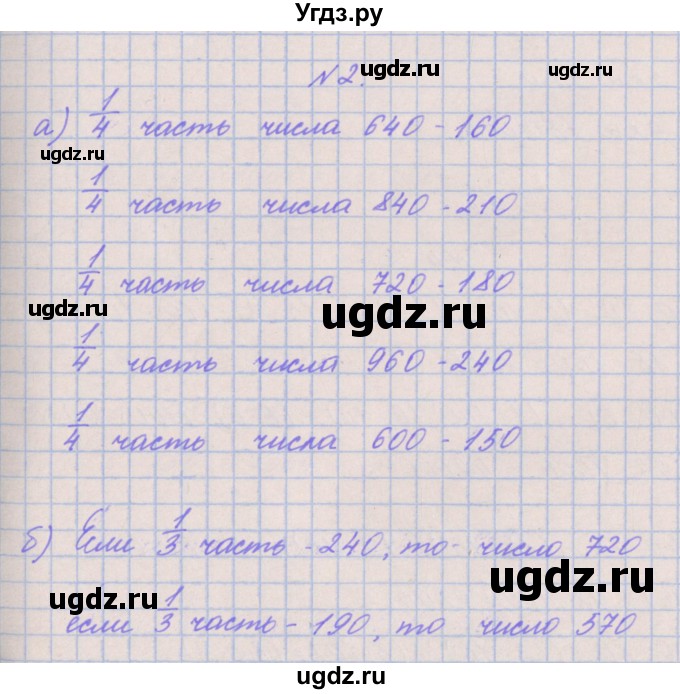 Угдз.ру
№2.
ugdz.ru
ugdz.ru
а) 1/4 часть числа 640 - 160
ugdz.ru
1/4 часть числа 840 - 210
1/4 часть числа 720 - 180
ugdz.ru
ugdz.ru
1/4 часть числа 960 - 240
1/4 часть числа 600 - 150
б) Если 1/3 часть - 240, то число 720
ugdz.ru
ugdz.ru
если 1/3 часть - 190, то число 570
ugdz.ru
ugdz.ru